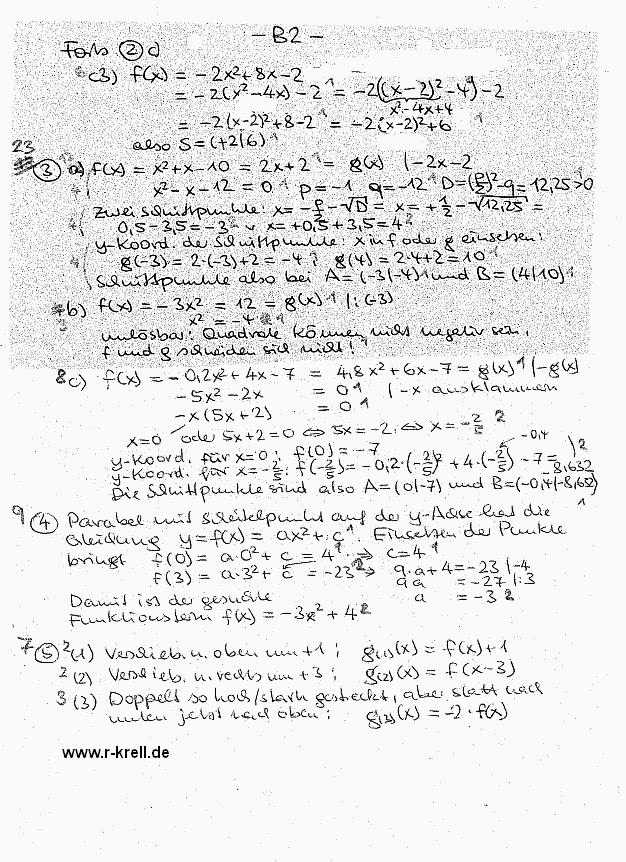 - B2 -
Forts ② c)
c3) f(x) = -2x²+8x-2
= -2(x²-4x) -2 ¹ = -2((x-2)²-4)¹-2
x²-4x+4
= -2(x-2)²+8-2 ¹ = -2(x-2)²+6 ¹
also S=(+2|6) ¹
23
③ a) f(x) = x²+x-10 = 2x+2 ¹ = g(x) |-2x-2
x²-x-12 = 0 ¹ p=-1 q=-12 ¹ D=(p/2)²-q = 12,25>0
Zwei Schnittpunkte: x=-p/2-√D = x=+1/2-√12,25 =
0,5-3,5=-3 v x=+0,5+3,5=4
y-Koord. der Schnittpunkte: x in f oder g einsetzen:
g(-3) = 2·(-3)+2 = -4 ; g(4) = 2·4+2 = 10 ¹
Schnittpunkte also bei A=(-3|-4) ¹ und B=(4|10) ¹
b) f(x) = -3x² = 12 = g(x) ¹ |:(-3)
3 x² = -4 ¹
unlösbar: Quadrate können nicht negativ sein,
f und g schneiden sich nicht! ¹
8 c) f(x) = -0,2x²+4x-7 = 4,8x²+6x-7 = g(x) ¹ |-g(x)
-5x²-2x = 0 ¹ |-x ausklammern
-x(5x+2) = 0 ¹
x=0 oder 5x+2=0 ⇔ 5x=-2 ⇔ x=-2/5 2
y-Koord. für x=0: f(0) = -7 -0,4
y-Koord. für x=-2/5: f(-2/5) = -0,2·(-2/5)²+4·(-2/5)-7= -8,632 )2
Die Schnittpunkte sind also A=(0|-7) und B=(-0,4|-8,632) ¹
9 ④ Parabel mit Scheitelpunkt auf der y-Achse hat die
Gleichung y=f(x) = ax²+c ¹. Einsetzen der Punkte
bringt f(0) = a·0²+c = 4 ¹ ⇒ c=4 ¹
f(3) = a·3²+c = -23 ² ⇒ 9·a+4=-23 |-4
9a = -27 |:3
Damit ist der gesuchte a = -3 2
Funktionsterm f(x) = -3x²+4 2
7 ⑤ 2 (1) Verschieb. n. oben um +1 ; g₍₁₎(x) = f(x)+1
2 (2) Verschieb. n. rechts um +3 ; g₍₂₎(x) = f(x-3)
3 (3) Doppelt so hoch/stark gestreckt, aber statt nach
unten jetzt nach oben: g₍₃₎(x) = -2·f(x)
www.r-krell.de